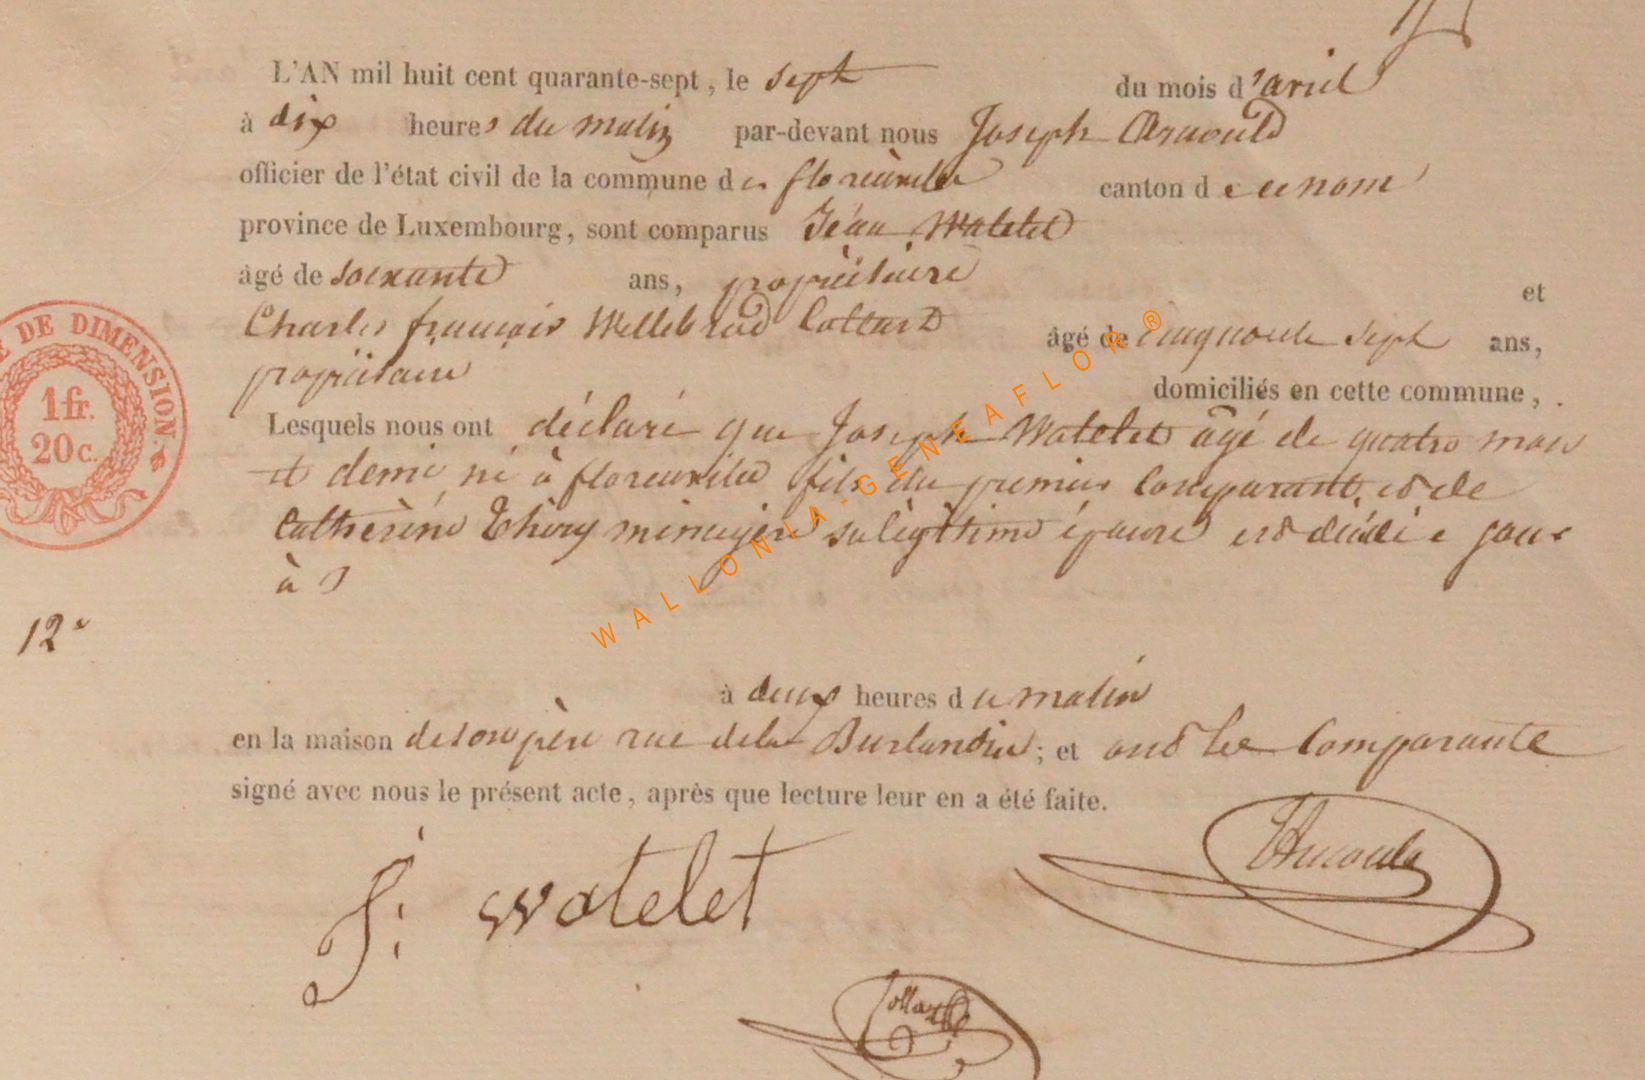 L'AN mil huit cent quarante-sept, le sept du mois d'avril
à dix heures du matin par-devant nous Joseph Arnould
officier de l'état civil de la commune de florenville canton de ce nom
province de Luxembourg, sont comparus Jéan Watelet
âgé de soixante ans, propriétaire et
Charles françois Willebrod Collard âgé de cinquante sept ans,
propriétaire domiciliés en cette commune,
Lesquels nous ont déclaré que Joseph Watelet agé de quatre mois
et demi né à florenville fils du premier comparant, et de
Catherine Thiry menagère sa légitime épouse est décédé e jour
à
12e
à deux heures du matin
en la maison de son père rue dela ; et ont les Comparants
signé avec nous le présent acte, après que lecture leur en a été faite.
J: watelet
JArnould
Collard
E DE DIMENSION.
1 fr.
20 c.
WALLONIA-GENEAFLOR®